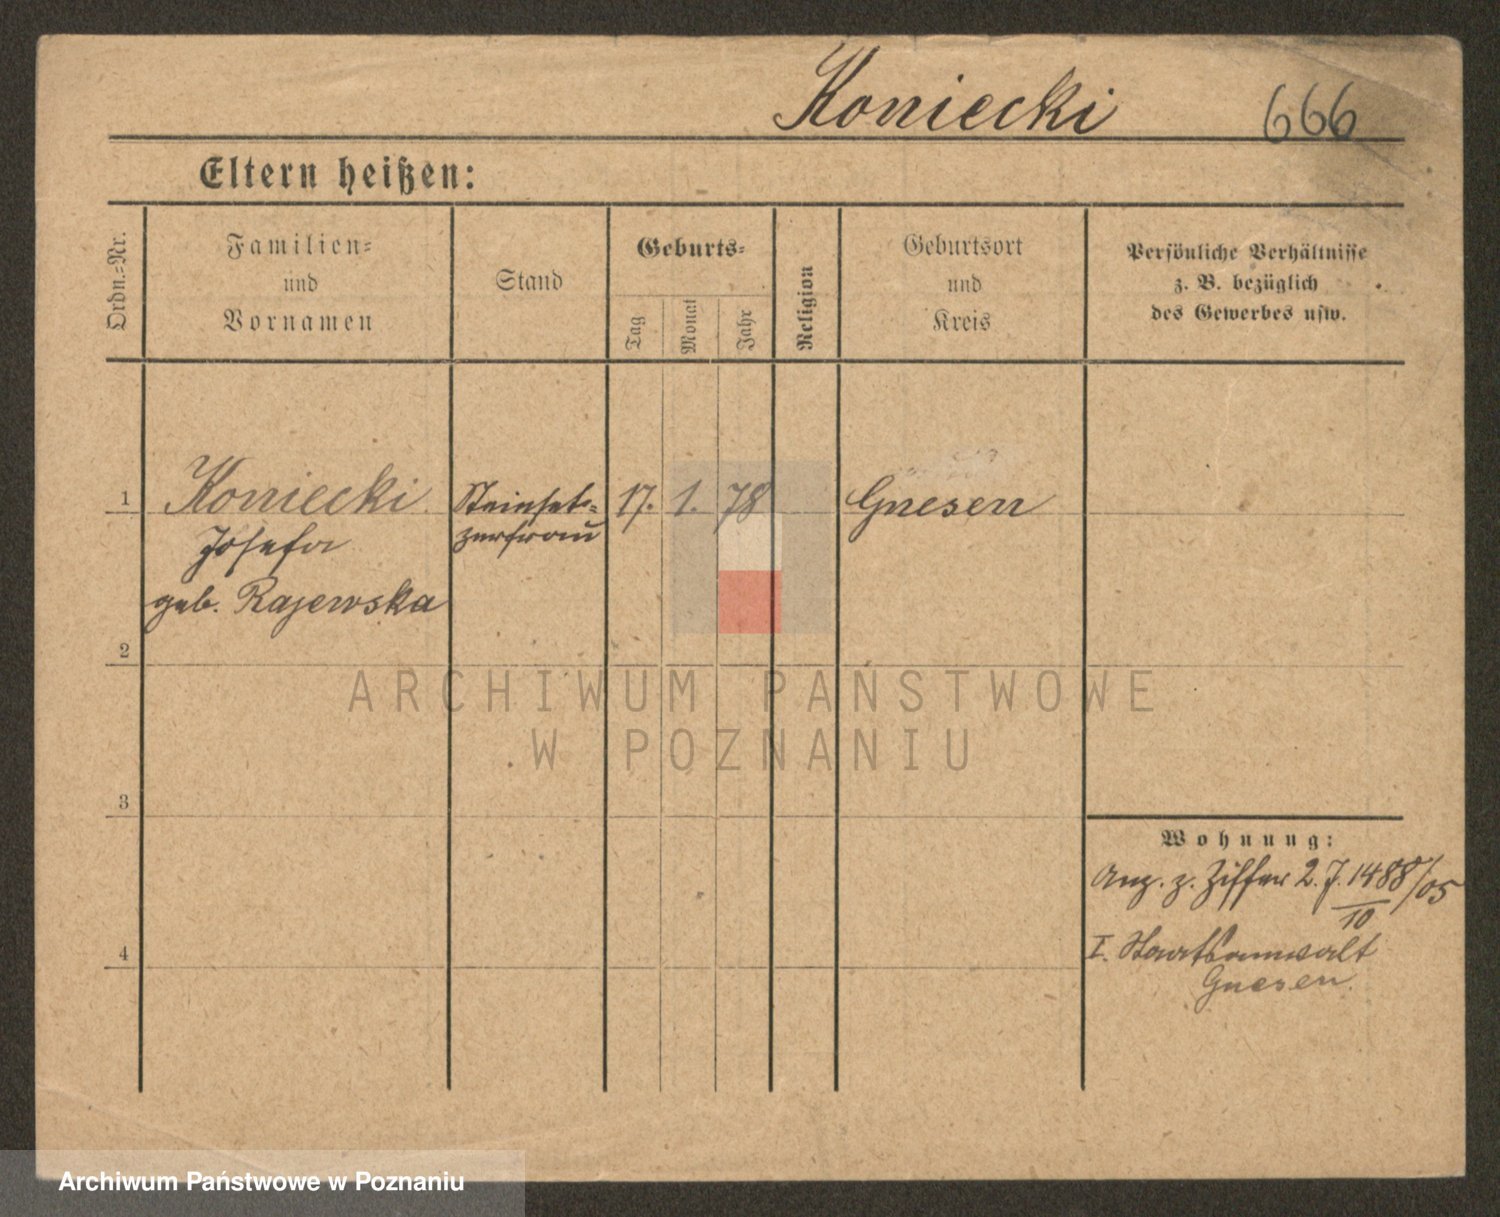 Koniecki 666
Eltern heißen:
Ordn.-Nr.
Familien-
und
Vornamen
Stand
Geburts-
Tag
Monat
Jahr
Religion
Geburtsort
und
Kreis
Persönliche Verhältnisse
z. B. bezüglich
des Gewerbes usw.
1 Koniecki Steinset- 17. 1. 78 Gnesen
Josefa zerfrau
geb. Rajewska
2
ARCHIWUM PAŃSTWOWE
W POZNANIU
3
Wohnung:
Anz. z. Ziffer 2. J. 1488/05
10
4
I. Staatsanwalt
Gnesen.
Archiwum Państwowe w Poznaniu